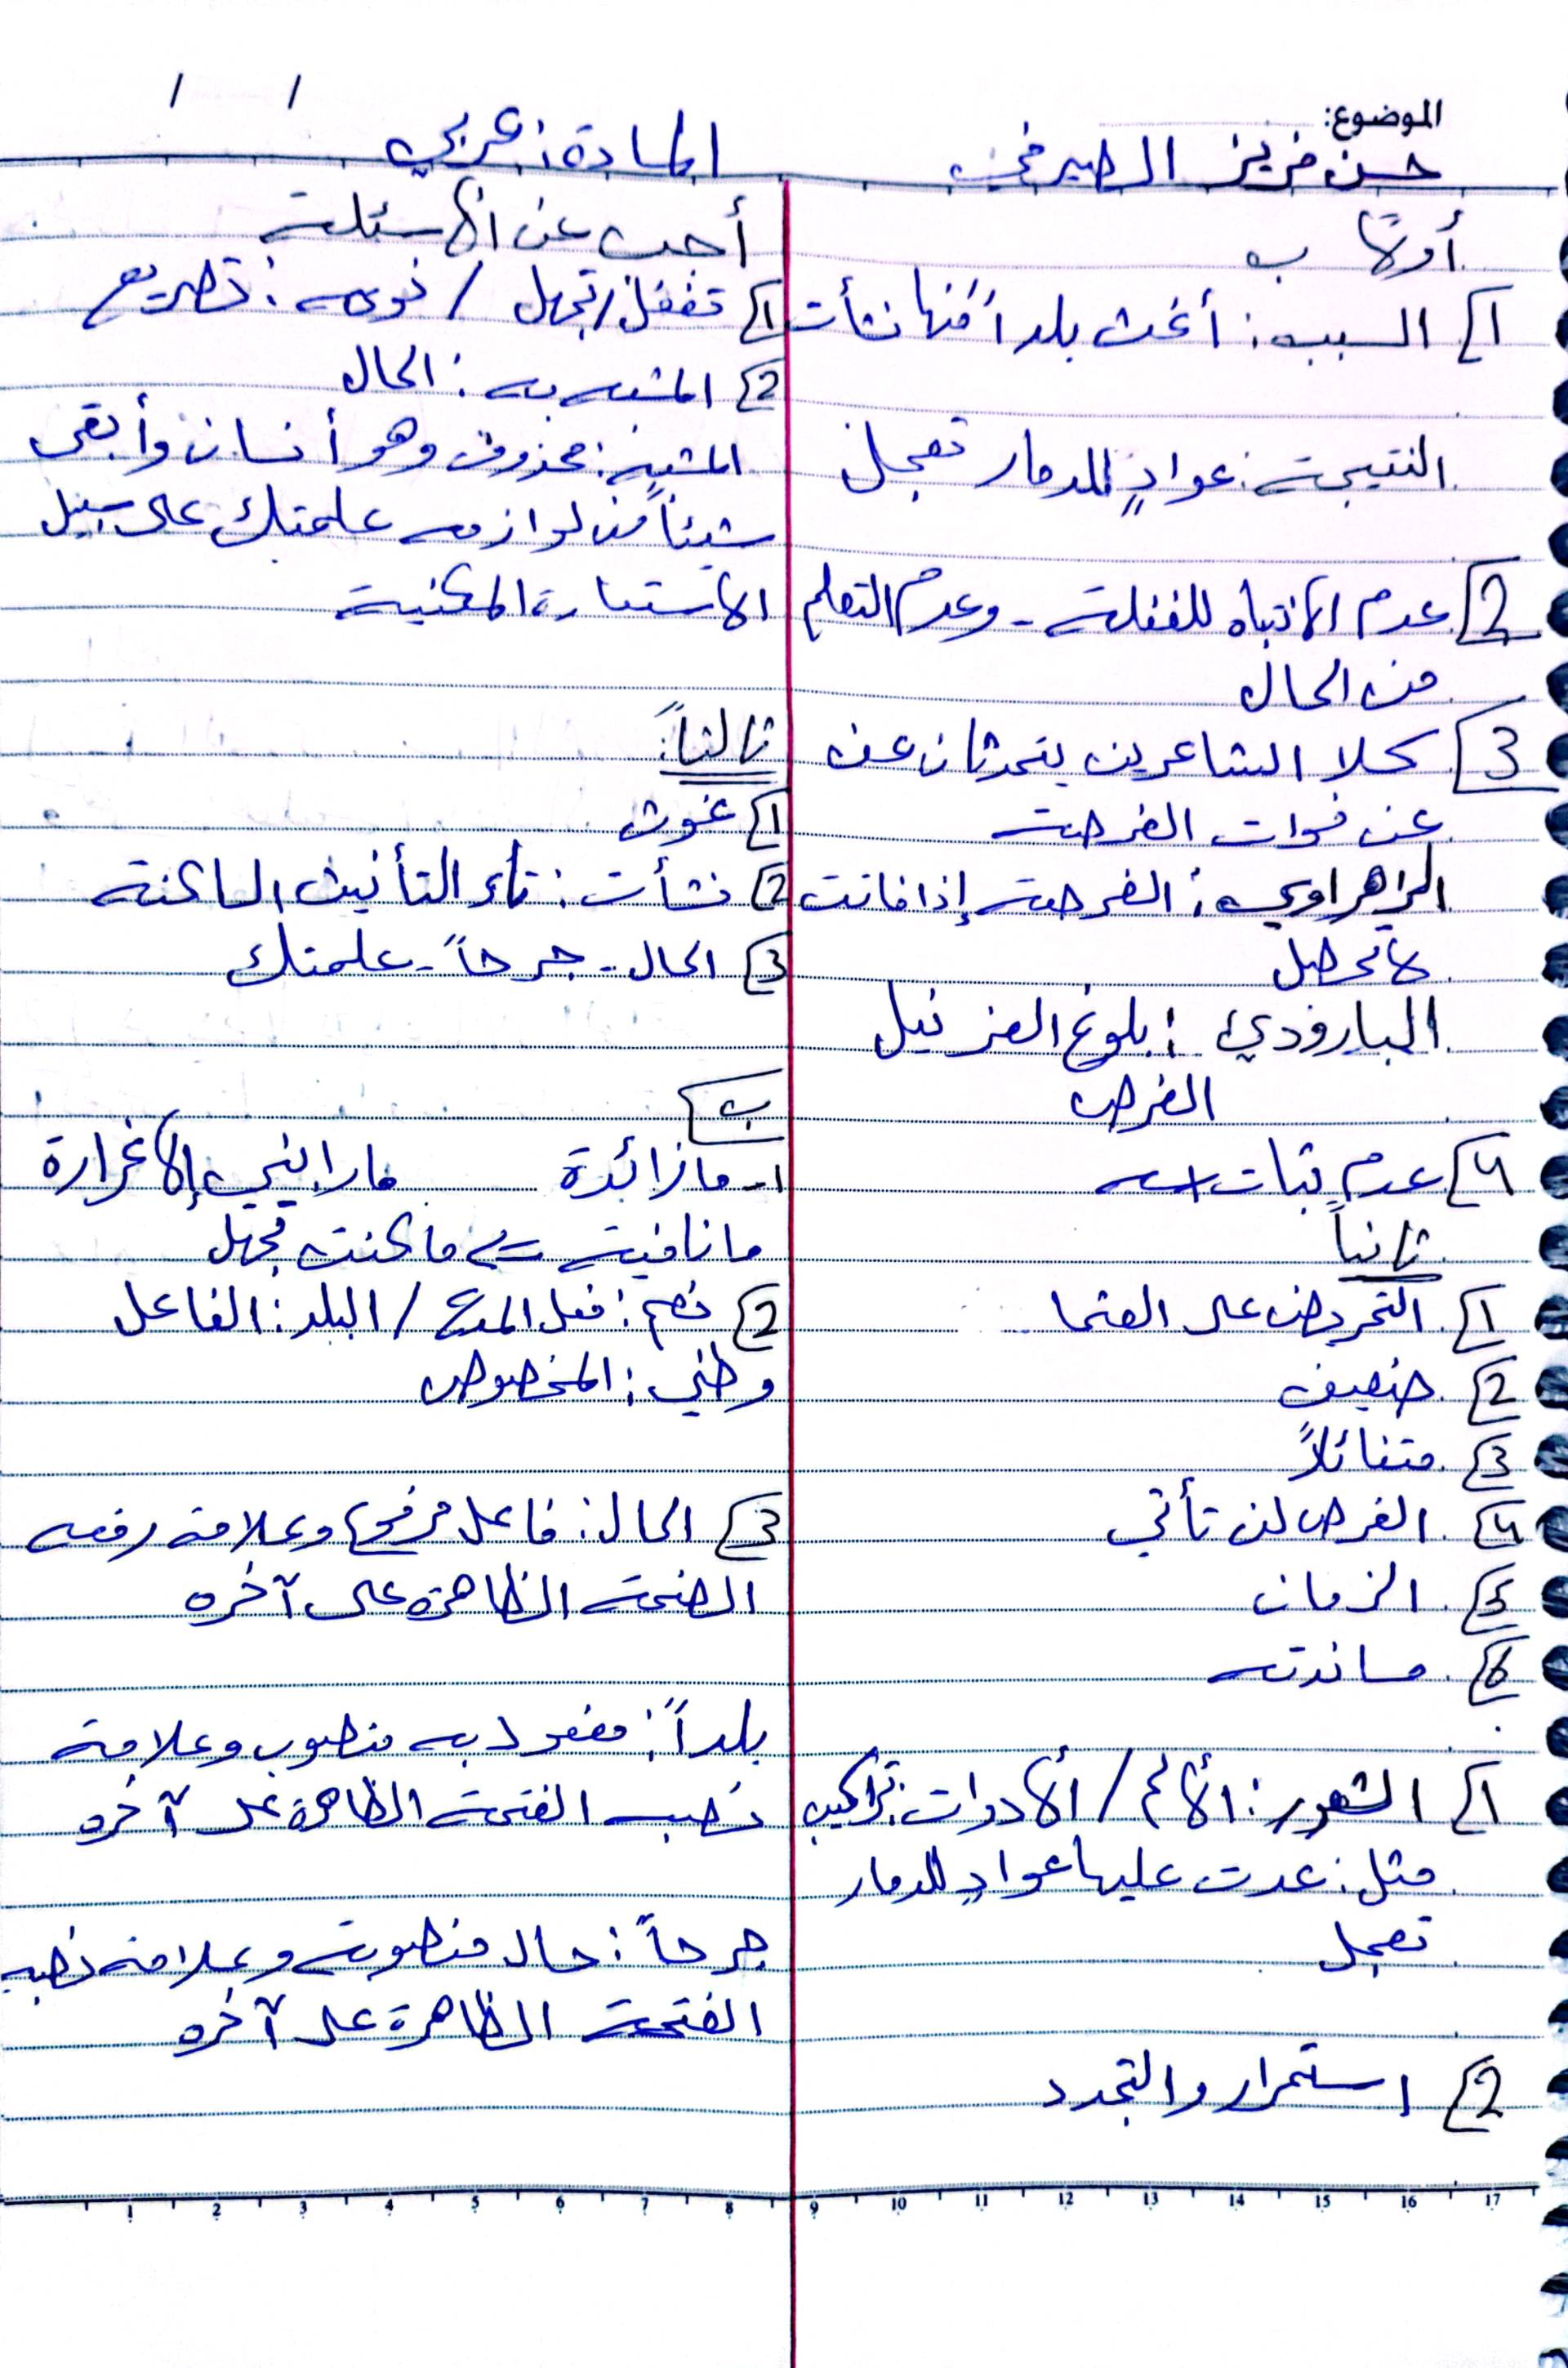 الموضوع:
حسن فريز الصيرفي
المادة: عربي
/ /
أولاً ب
1] السبب: أغث بلداً منها نشأت
النتيجة: عوادٍ للدمار تعجل
2] عدم الانتباه للغفلة - وعدم التعلم
من الحال
3] كلا الشاعرين يتحدثان عن
عن فوات الفرصة
الزهراوي: الفرصة إذا فاتت
لا تحصل
البارودي: بلوغ العز نيل
الفرص
4] عدم ثبات
ثانياً
1] التحريض على
2] ضعيف
3] متفائلاً
4] الفرص لن تأتي
5] الزمان
6] ساندته
1] الشعور: ألألم / ألأدوات: تراكيب
مثل: عدت عليها عوادٍ للدمار
تعجل
2] استمرار والتجدد
أجب عن الأسئلة
1] تغفل / تجهل / نوعه: تصريع
2] المشبه به: الحال
المشبه: محذوف وهو أنسان وأبقى
شيئاً من لوازمه علمتك على سبيل
الاستعارة المكنية
ثالثاً:
1] غوث
2] نشأت: تاء التأنيث الساكنة
3] الحال - جرحاً - علمتك
ب]
1- ما زائدة ما رابني إلا غرارة
ما نافية => ما كنت تجهل
2] نعم: فعل المدح / البلد: الفاعل
وطني: المخصوص
3] الحال: فاعل مرفوع وعلامة رفعه
الضمة الظاهرة على آخره
بلداً: مفعول به منصوب وعلامة
نصبه الفتحة الظاهرة على آخره
جرحاً: حال منصوبة وعلامة نصبه
الفتحة الظاهرة على آخره
1 2 3 4 5 6 7 8 9 10 11 12 13 14 15 16 17